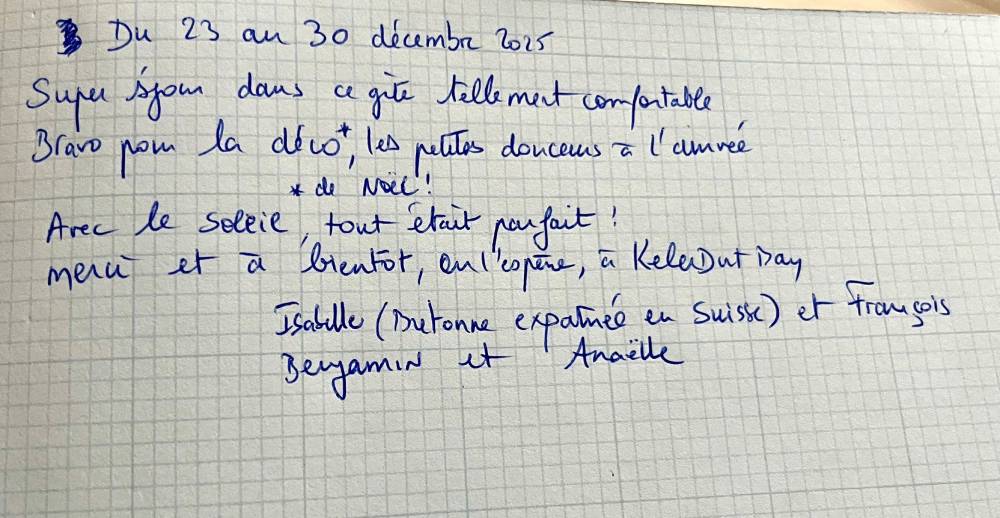 Du 23 au 30 décembre 2025
Super séjour dans ce gîte tellement comfortable
Bravo pour la déco*, les petites douceurs à l'arrivée
* de Noël !
Avec le soleil, tout était parfait !
Merci et à bientôt, on l'espère, à
Isabelle (Bretonne expatriée en Suisse) et François
Benjamin et Anaëlle